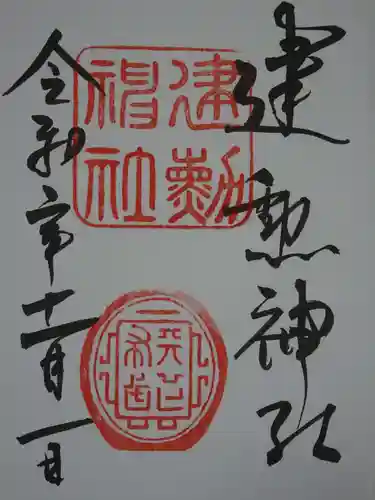 建勲神社
建勲神社
令和 年十二月一日